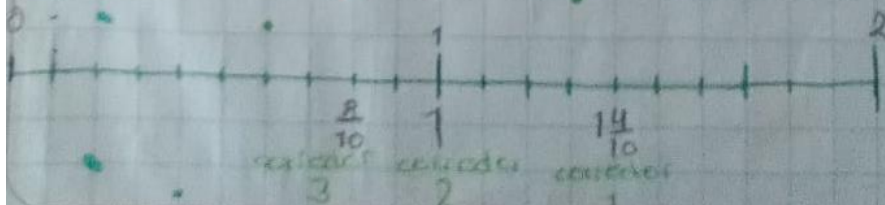 0 1 2
8/10 1 1 4/10
corredor corredor corredor
3 2 1